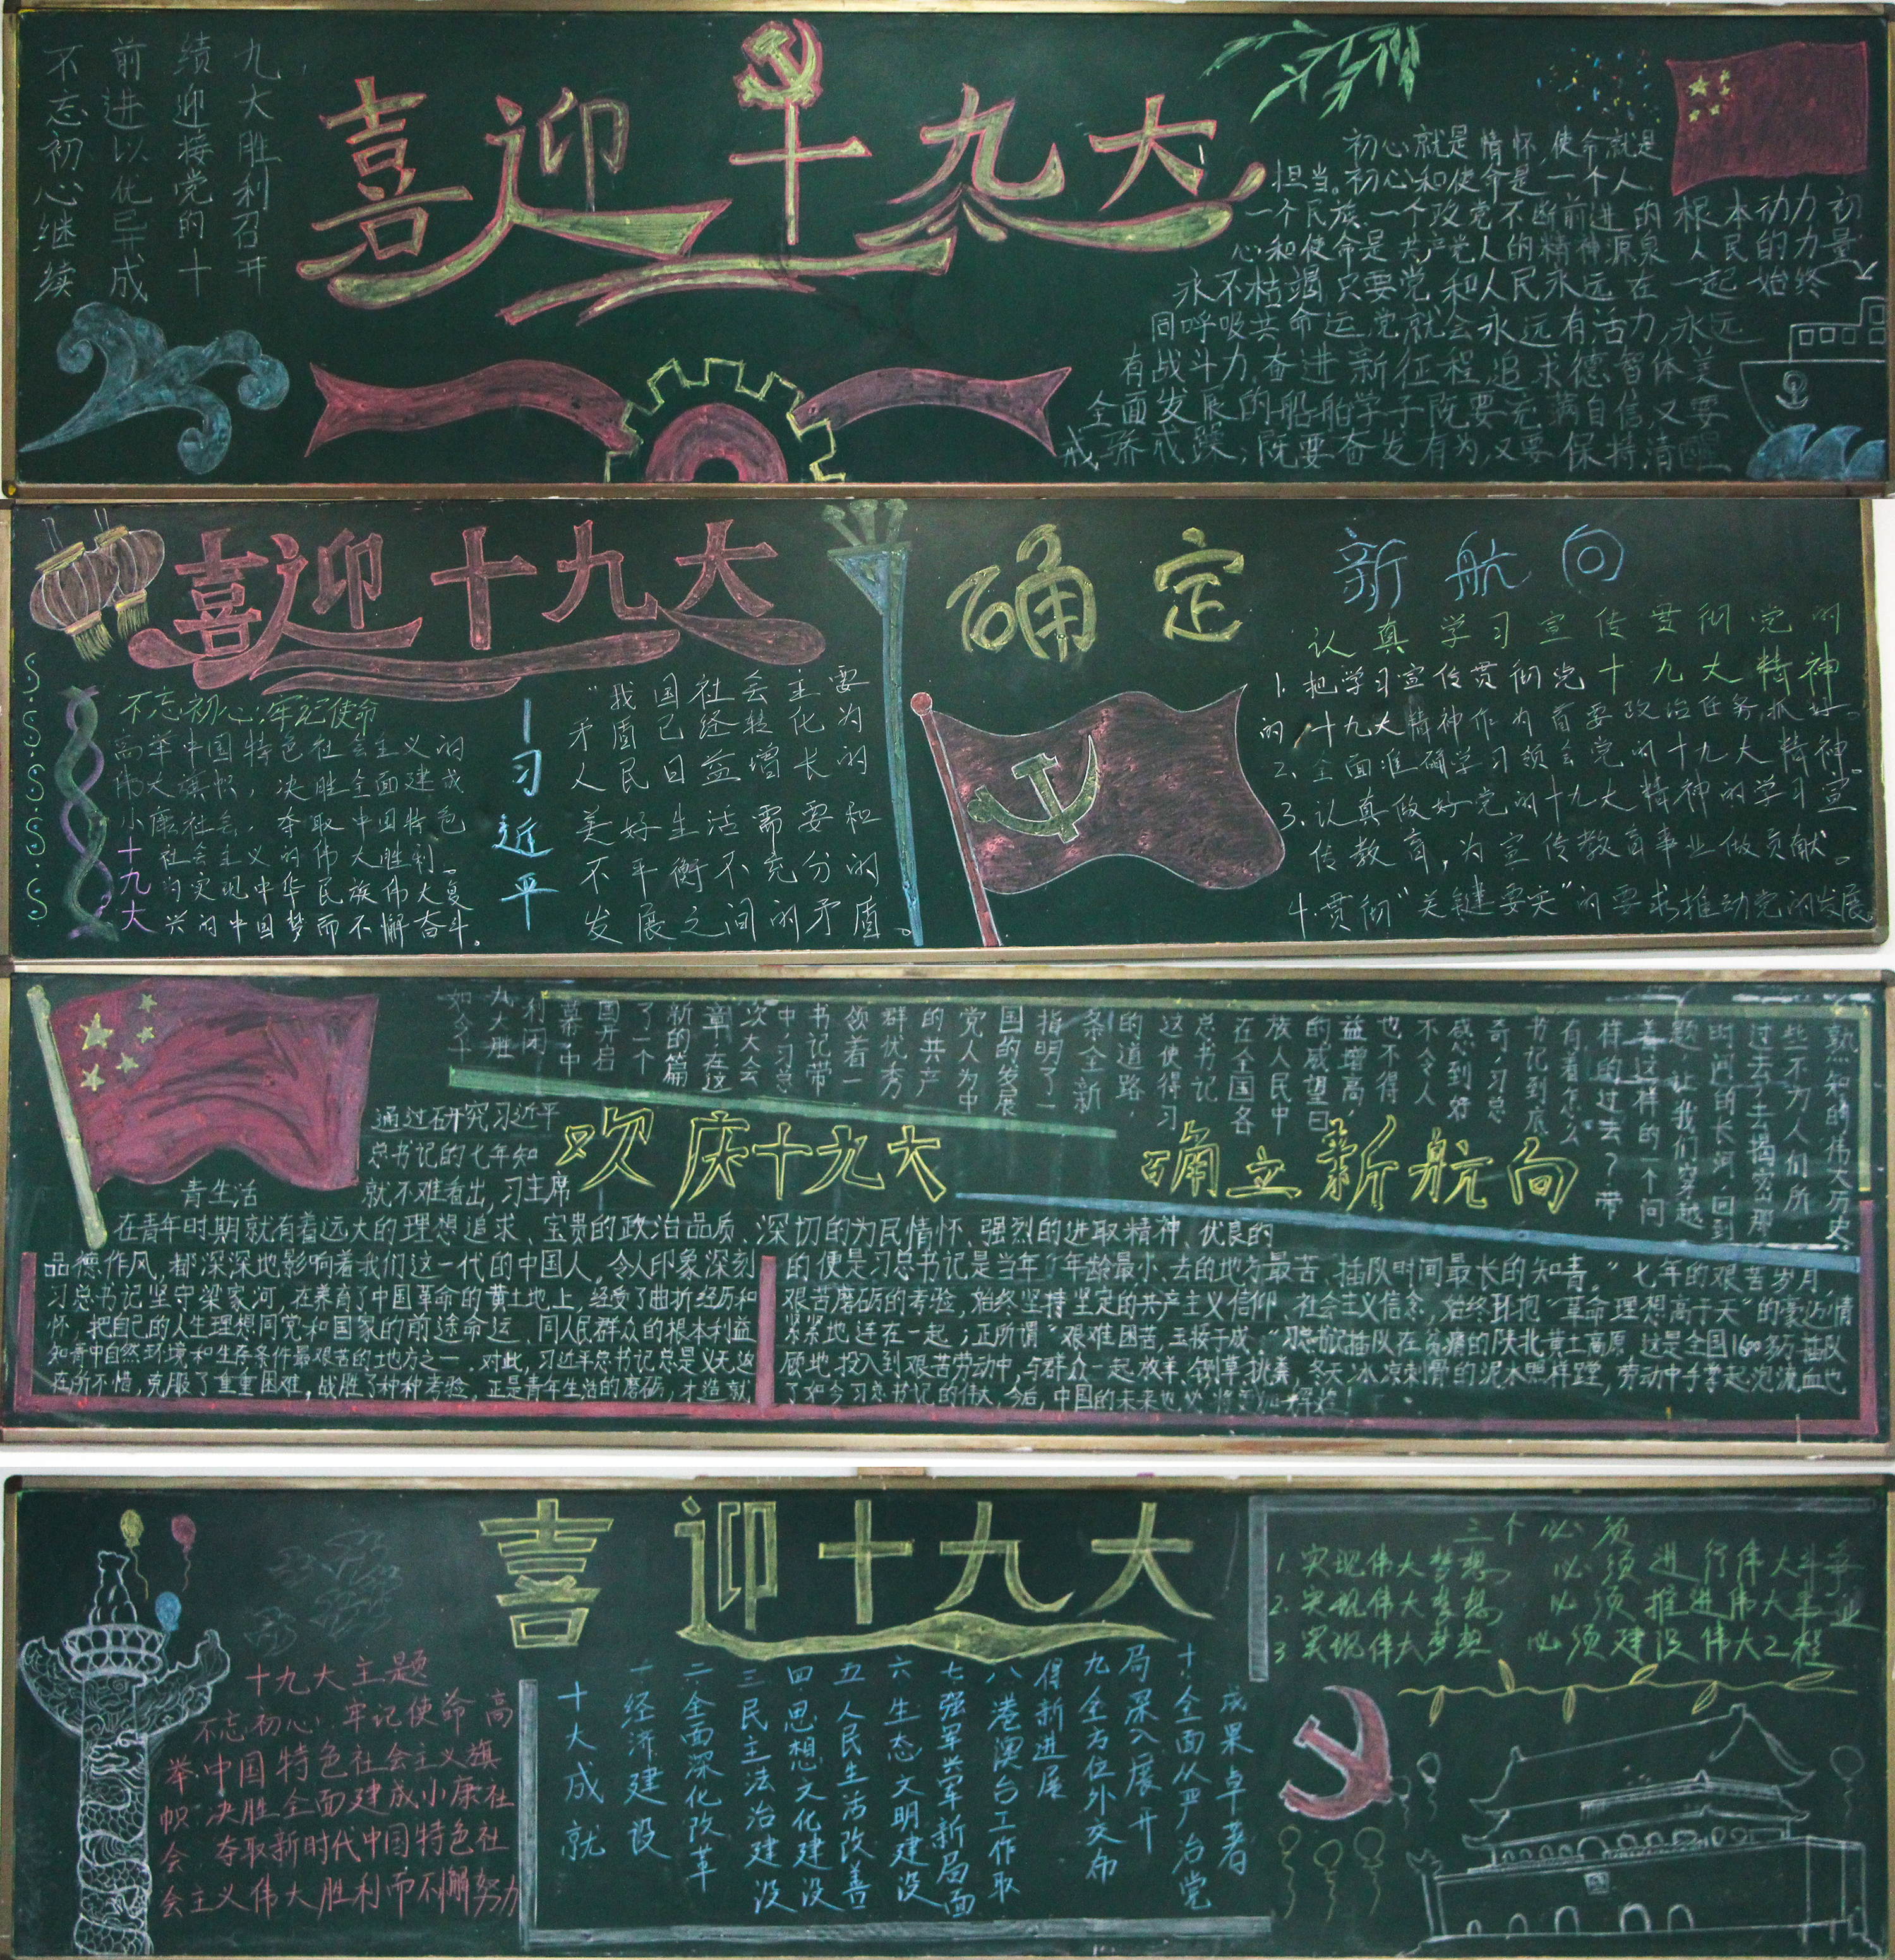 九大胜利召开
绩迎接党的十
前进以优已开成
不忘初心继续
喜迎十九大
初心就是情怀,使命就是
担当。初心和使命是一个人
一个民族、一个政党不断前进的根本动力初
心和使命是共产党人的精神源泉 人民的力量
永不枯竭 只要党和人民永远在一起 始终
同呼吸共命运,党就会永远有活力,永远
有战斗力,奋进新征程,追求德智体美
全面发展的船舶学子既要充满自信,又要
戒骄戒躁,既要奋发有为,又要保持清醒
喜迎十九大
不忘初心,牢记使命
高举中国特色社会主义的
伟大旗帜,决胜全面建成
小康社会,夺取中国特色
社会主义的伟大胜利。
为实现中华民族伟大复
兴的中国梦而不懈奋斗。
十九大
“我国社会主要
矛盾已经转化为
人民日益增长的
美好生活需要和
不平衡不充分的
发展之间的矛盾。
—习近平
确定
新航向
认真学习宣传贯彻党的
十九大精神
1.把学习宣传贯彻党
的十九大精神作为首要政治任务,抓好。
2.全面准确学习领会党的十九大精神
3.认真做好党的十九大精神的学习宣
传教育,为宣传教育事业做贡献。
4.贯彻“关键要实”的要求推动党的发展
熟知的伟大历史,
些不为人们所
过去了去揭密那
时间的长河,回到
题,让我们穿越
着这样的一个问
样的过去?带
有着怎么
书记到底
奇,习总
感到好
不令人
也不得
益增高,
的威望日
族人民中
在全国各
总书记
这使得习
的道路,
条全新
指明了一
国的发展
党人为中
的共产
群优秀
领着一
书记带
中,习总
次大会
章,在这
新的篇
了一个
国开启
幕,中
利闭
九大胜
如今十
欢庆十九大
确立新航向
通过研究习近平
总书记的七年知
青生活
就不难看出,习主席
在青年时期就有着远大的理想追求、宝贵的政治品质、深切的为民情怀、强烈的进取精神、优良的
品德作风,都深深地影响着我们这一代的中国人。令人印象深刻
的便是习总书记是当年“年龄最小、去的地方最苦、插队时间最长的知青。”七年的艰苦岁月,
习总书记坚守梁家河,在养育了中国革命的黄土地上,经受了曲折经历和
艰苦磨砺的考验,始终坚持坚定的共产主义信仰、社会主义信念,始终环抱“革命理想高于天”的豪迈情
怀,把自己的人生理想同党和国家的前途命运、同人民群众的根本利益
紧紧地连在一起;正所谓“艰难困苦,玉接于成。”习总书记插队在贫瘠的陕北黄土高原,这是全国1600多万插队
知青中自然环境和生存条件最艰苦的地方之一。对此,习近平总书记总是义无返
顾地投入到艰苦劳动中,与群众一起放羊、铡草、挑粪,冬天冰凉刺骨的泥水照样蹚,劳动中手掌起泡流血也
在所不惜,克服了重重困难,战胜了种种考验。正是青年生活的磨砺,才造就
了如今习总书记的伟大,今后,中国的未来也必将更加辉煌!
喜迎十九大
十九大主题
不忘初心,牢记使命 高
举中国特色社会主义旗
帜,决胜全面建成小康社
会,夺取新时代中国特色社
会主义伟大胜利而不懈努力
十大成就
一经济建设
二全面深化改革
三民主法治建设
四思想文化建设
五人民生活改善
六生态文明建设
七强军兴军新局面
八港澳台工作取
得新进展
九全方位外交布
局深入展开
十全面从严治党
成果卓著
三个必须
1.实现伟大梦想 必须进行伟大斗争
2.实现伟大梦想 必须推进伟大事业
3.实现伟大梦想 必须建设伟大工程